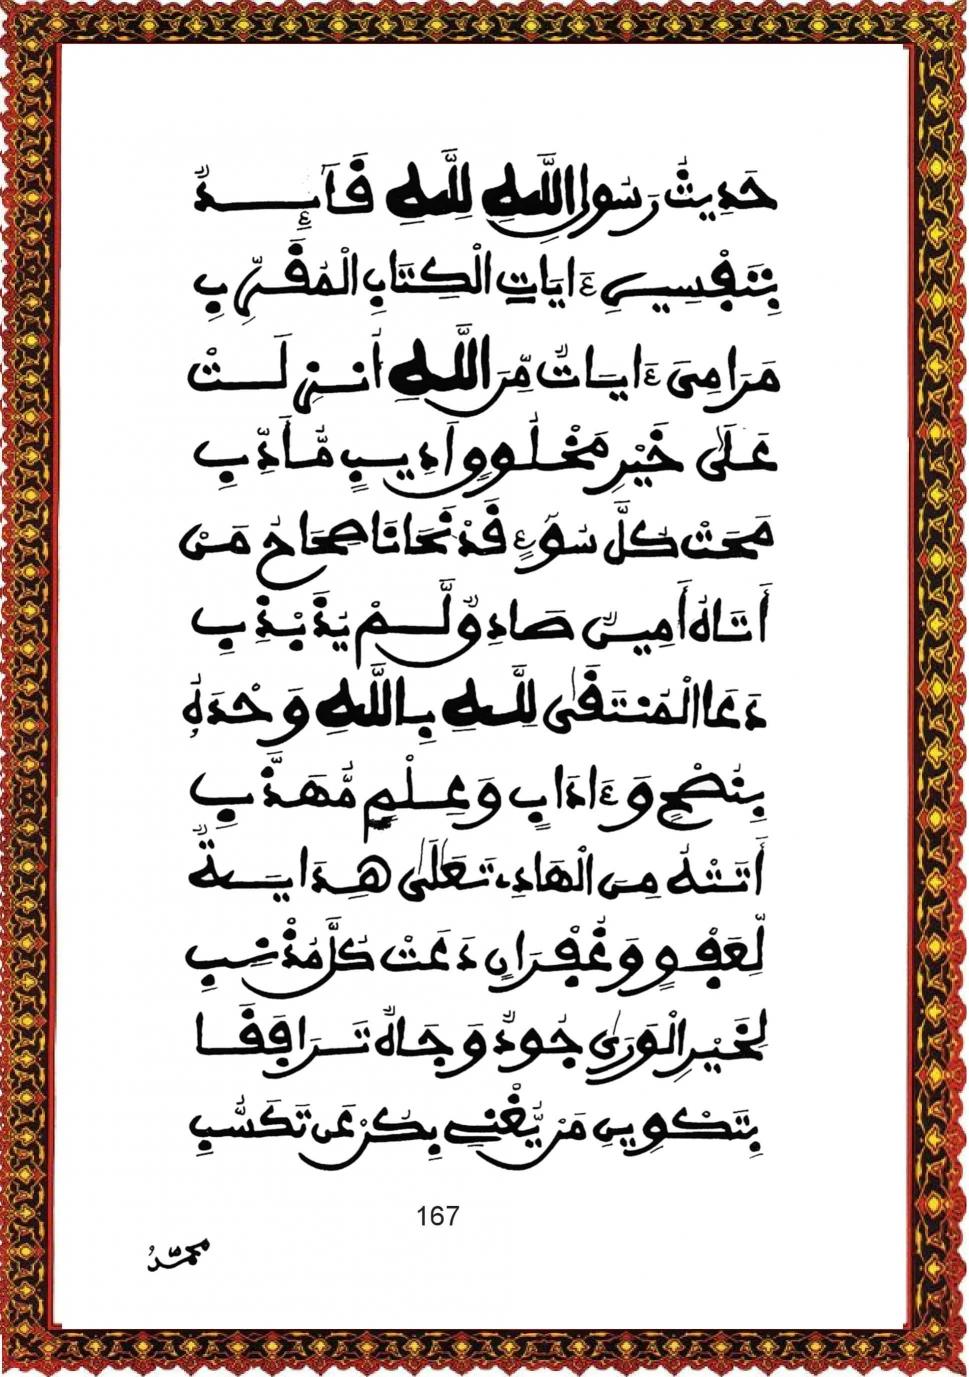 حَدِيثُ رَسُولِ اللَّهِ لِلَّهِ قَآئِدٌ
بِتَفْسِيرِ ءَايَاتِ الْكِتَابِ الْمُقَرِّبِ
مَرَامِى ءَايَاتٌ مِّنَ اللَّهِ أُنزِلَتْ
عَلَى خَيْرِ مَخْلُوقٍ أَدِيبٍ مُّأَدِّبِ
مَحَتْ كُلَّ سُوٓءٍ قَدْ نَحَانَا صِحَاحُ مَنْ
أَتَاهُ أَمِينٌ صَادِقٌ لَّمْ يُذَبْذِبِ
دَعَا الْمُنتَقَى لِلَّهِ بِاللَّهِ وَحْدَهُ
بِنُصْحٍ وَءَادَابٍ وَعِلْمٍ مُّهَذِّبِ
أَتَتْهُ مِنَ الْهَادِى تَعَلَى هِدَايَةٌ
لِّعَفْوٍ وَغُفْرَانٍ دَعَتْ كُلَّ مُذْنِبِ
لِخَيْرِ الْوَرَى جُودٌ وَجَاهٌ تَرَافَقَا
بِتَكْوِينِ مَنْ يُّغْنِى بِكُن عَن تَكَسُّبِ
167
محمد